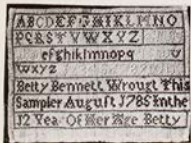 ABCDEFGHIKLMNO
PQRSTVWXYZ
efghiklmnopq
wxyz
Betty Bennett Wrougt This
Sampler August 1785 In the
12 Yea Of Her Age Betty